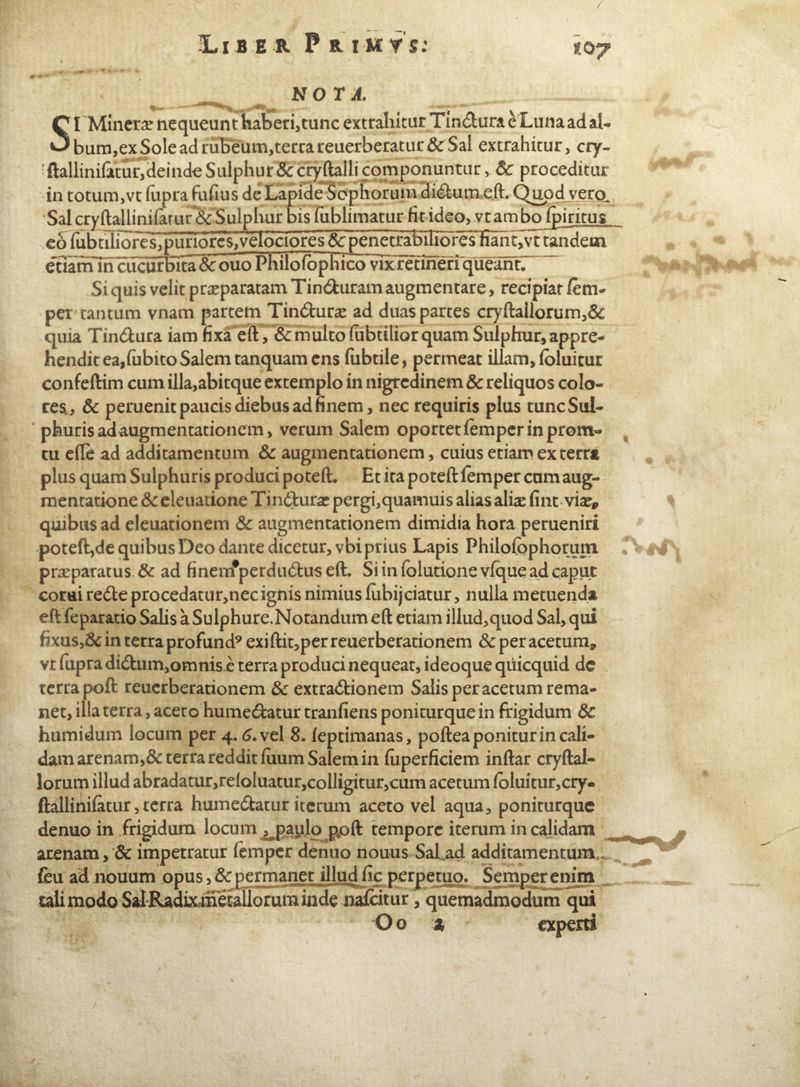 LIBER PRIMVS: 107
NOTA.
SI Mineræ nequeunt haberi,tunc extrahitur Tinctura è Luna ad al-
bum,ex Sole ad rubeum,terra reuerberatur & Sal extrahitur, cry-
ſtalliniſatur,deinde Sulphur & cryſtalli componuntur, & proceditur
in totum,vt ſupra fuſius de Lapide Sophorum dictum eſt. Quod vero
Sal cryſtalliniſatur & Sulphur bis ſublimatur fit ideo, vt ambo ſpiritus
eò ſubtiliores,puriores,velociores & penetrabiliores fiant,vt tandem
etiam in cucurbita & ouo Philoſophico vix retineri queant.
Si quis velit præparatam Tincturam augmentare, recipiat ſem-
per tantum vnam partem Tincturæ ad duas partes cryſtallorum,&
quia Tinctura iam fixa eſt, & multo ſubtilior quam Sulphur, appre-
hendit ea,ſubito Salem tanquam ens ſubtile, permeat illam, ſoluitur
confeſtim cum illa,abitque extemplo in nigredinem & reliquos colo-
res, & peruenit paucis diebus ad finem, nec requiris plus tunc Sul-
phuris ad augmentationem, verum Salem oportet ſemper in prom-
tu eſſe ad additamentum & augmentationem, cuius etiam ex terra
plus quam Sulphuris produci poteſt. Et ita poteſt ſemper cum aug-
mentatione & eleuatione Tincturæ pergi,quamuis alias aliæ ſint viæ,
quibus ad eleuationem & augmentationem dimidia hora perueniri
poteſt,de quibus Deo dante dicetur, vbi prius Lapis Philoſophorum
præparatus & ad finem perductus eſt. Si in ſolutione vſque ad caput
corui recte procedatur,nec ignis nimius ſubijciatur, nulla metuenda
eſt ſeparatio Salis à Sulphure. Notandum eſt etiam illud,quod Sal, qui
fixus,& in terra profundꝰ exiſtit,per reuerberationem & per acetum,
vt ſupra dictum,omnis è terra produci nequeat, ideoque quicquid de
terra poſt reuerberationem & extractionem Salis per acetum rema-
net, illa terra, aceto humectatur tranſiens poniturque in frigidum &
humidum locum per 4. 6. vel 8. ſeptimanas, poſtea ponitur in cali-
dam arenam,& terra reddit ſuum Salem in ſuperficiem inſtar cryſtal-
lorum illud abradatur,reſoluatur,colligitur,cum acetum ſoluitur,cry-
ſtalliniſatur, terra humectatur iterum aceto vel aqua, poniturque
denuo in frigidum locum, paulo poſt tempore iterum in calidam
arenam, & impetratur ſemper denuo nouus Sal ad additamentum
ſeu ad nouum opus, & permanet illud ſic perpetuo. Semper enim
tali modo Sal Radix metallorum inde naſcitur, quemadmodum qui
Oo 2 experti